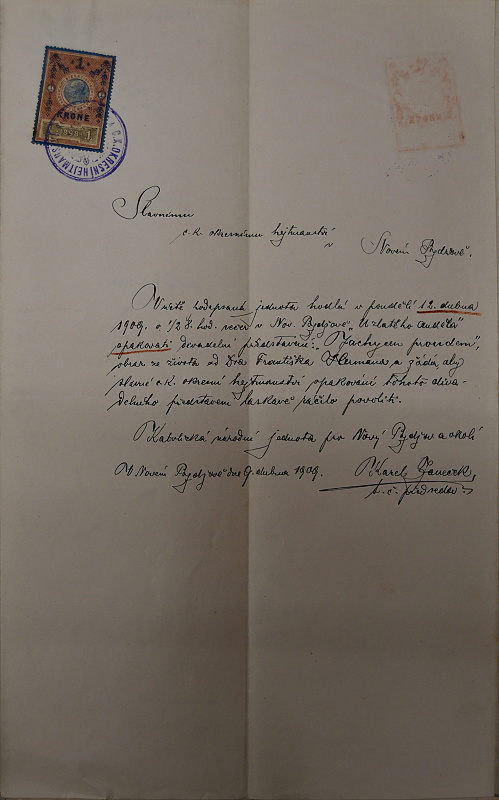 1
KRONE
1898
C.K. OKRESNÍ HEJTMAN
KRONE
Slavnému
c. k. okresnímu hejtmanství
v
Novém Bydžově.
V úctě podepsaná jednota hodlá v pondělí 12. dubna
1909. o 1/2 8. hod. večer v Nov. Bydžově "U zlatého anděla"
opakovati divadelní představení: "Zachycen proudem",
obraz ze života od Dra Františka Heřmana a žádá, aby
slavné c. k. okresní hejtmanství opakování tohoto diva-
delního představení laskavě ráčilo povoliti.
Katolická národní jednota pro Nový Bydžov a okolí
V Novém Bydžově dne 9. dubna 1909.
Karel
t. č. předseda